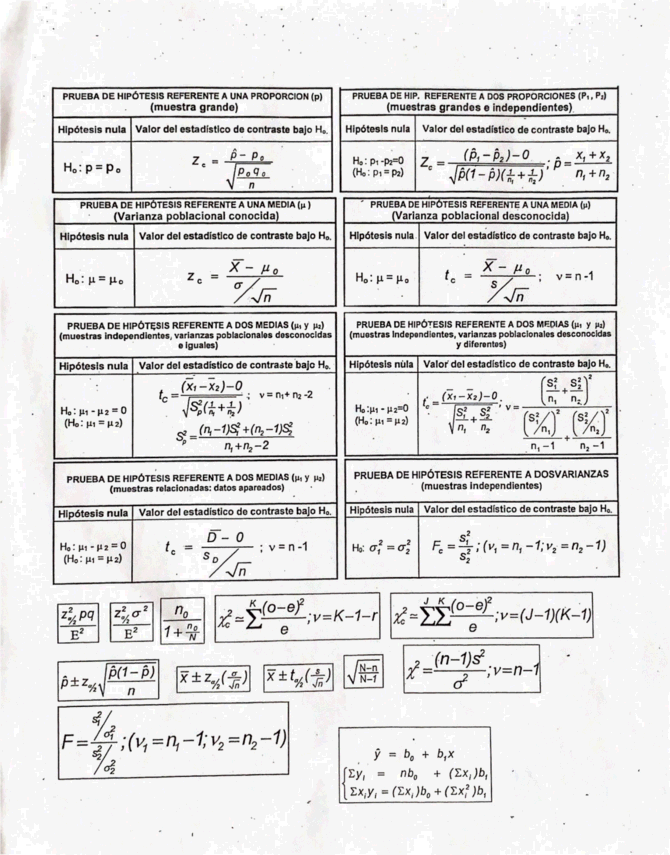 PRUEBA DE HIPÓTESIS REFERENTE A UNA PROPORCION (p)
(muestra grande)
Hipótesis nula | Valor del estadístico de contraste bajo Hₒ.
Hₒ: p = pₒ
Z_c = (p̂ - pₒ) / √(pₒqₒ / n)
PRUEBA DE HIP. REFERENTE A DOS PROPORCIONES (P₁, P₂)
(muestras grandes e independientes)
Hipótesis nula | Valor del estadístico de contraste bajo Hₒ.
Hₒ: p₁ -p₂=0
(Hₒ: p₁ = p₂)
Z_c = ((p̂₁ - p̂₂) - 0) / √(p̂(1-p̂)(1/n₁ + 1/n₂)) ; p̂ = (x₁ + x₂) / (n₁ + n₂)
PRUEBA DE HIPÓTESIS REFERENTE A UNA MEDIA (μ)
(Varianza poblacional conocida)
Hipótesis nula | Valor del estadístico de contraste bajo Hₒ.
Hₒ: μ = μₒ
Z_c = (X̅ - μₒ) / (σ/√n)
PRUEBA DE HIPÓTESIS REFERENTE A UNA MEDIA (μ)
(Varianza poblacional desconocida)
Hipótesis nula | Valor del estadístico de contraste bajo Hₒ.
Hₒ: μ = μₒ
t_c = (X̅ - μₒ) / (s/√n) ; ν = n -1
PRUEBA DE HIPÓTESIS REFERENTE A DOS MEDIAS (μ₁ y μ₂)
(muestras independientes, varianzas poblacionales desconocidas
e iguales)
Hipótesis nula | Valor del estadístico de contraste bajo Hₒ.
Hₒ: μ₁ - μ₂ = 0
(Hₒ: μ₁ = μ₂)
t_c = ((x̅₁ - x̅₂) - 0) / √(S²_p(1/n₁ + 1/n₂)) ; ν = n₁+ n₂ -2
S²_p = ((n₁-1)S₁² + (n₂-1)S₂²) / (n₁+n₂-2)
PRUEBA DE HIPÓTESIS REFERENTE A DOS MEDIAS (μ₁ y μ₂)
(muestras Independientes, varianzas poblacionales desconocidas
y diferentes)
Hipótesis nula | Valor del estadístico de contraste bajo Hₒ.
Hₒ:μ₁ - μ₂=0
(Hₒ: μ₁ = μ₂)
t_c = ((x̅₁ - x̅₂) - 0) / √(S₁²/n₁ + S₂²/n₂) ; ν = (S₁²/n₁ + S₂²/n₂)² / ((S₁²/n₁)²/(n₁ - 1) + (S₂²/n₂)²/(n₂ - 1))
PRUEBA DE HIPÓTESIS REFERENTE A DOS MEDIAS (μ₁ y μ₂)
(muestras relacionadas: datos apareados)
Hipótesis nula | Valor del estadístico de contraste bajo Hₒ.
Hₒ: μ₁ - μ₂ = 0
(Hₒ: μ₁ = μ₂)
t_c = (D̅ - 0) / (s_D/√n) ; ν = n -1
PRUEBA DE HIPÓTESIS REFERENTE A DOSVARIANZAS
(muestras Independientes)
Hipótesis nula | Valor del estadístico de contraste bajo Hₒ.
H₀: σ₁² = σ₂²
F_c = s₁²/s₂² ; (ν₁ = n₁ - 1; ν₂ = n₂ - 1)
z²_α/2 pq / E²
z²_α/2 σ² / E²
n₀ / (1 + n₀/N)
χ²_c ≃ Σ^K (o-e)²/e ; ν=K-1-r
χ²_c ≃ Σ^J Σ^K (o-e)²/e ; ν=(J-1)(K-1)
p̂ ± z_α/2 √(p̂(1-p̂)/n)
x̅ ± z_α/2(σ/√n)
x̅ ± t_α/2(s/√n)
√((N-n)/(N-1))
χ² = (n-1)s²/σ² ; ν=n-1
F = (s₁²/σ₁²) / (s₂²/σ₂²) ; (ν₁ = n₁-1; ν₂ = n₂-1)
ŷ = b₀ + b₁x
Σyᵢ = nb₀ + (Σxᵢ)b₁
Σxᵢyᵢ = (Σxᵢ)b₀ + (Σxᵢ²)b₁